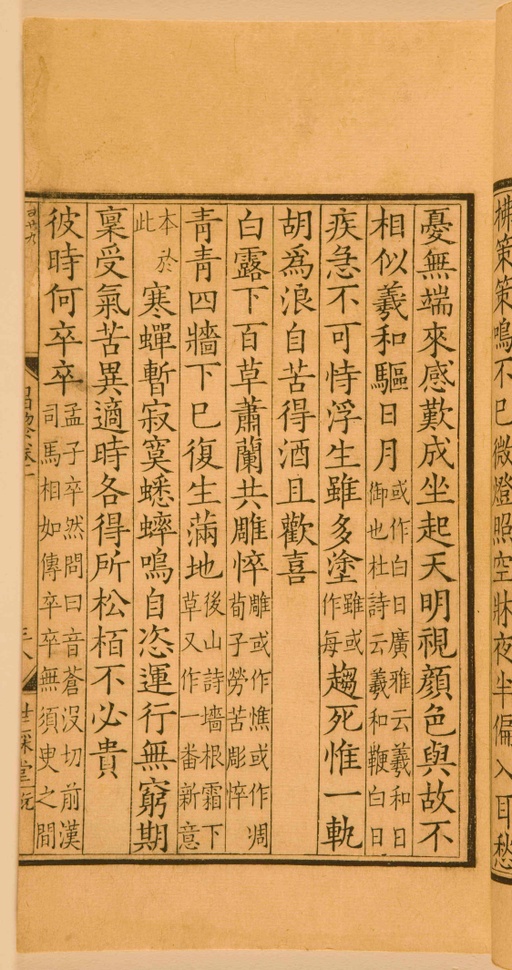 拂策策鳴不已微燈照空牀夜半偏入耳愁
憂無端來感歎成坐起天明視顏色與故不
相似羲和驅日月
或作白日廣雅云羲和日
御也杜詩云羲和鞭白日
疾急不可恃浮生雖多塗
雖或
作每
趨死惟一軌
胡爲浪自苦得酒且歡喜
白露下百草蕭蘭共雕悴
雕或作憔或作凋
荀子勞苦彫悴
青青四牆下已復生滿地
後山詩墻根霜下
草又作一番新意
本於
此
寒蟬暫寂寞蟋蟀鳴自恣運行無窮期
稟受氣苦異適時各得所松栢不必貴
彼時何卒卒
孟子卒然問曰音蒼沒切前漢
司馬相如傳卒卒無須臾之間